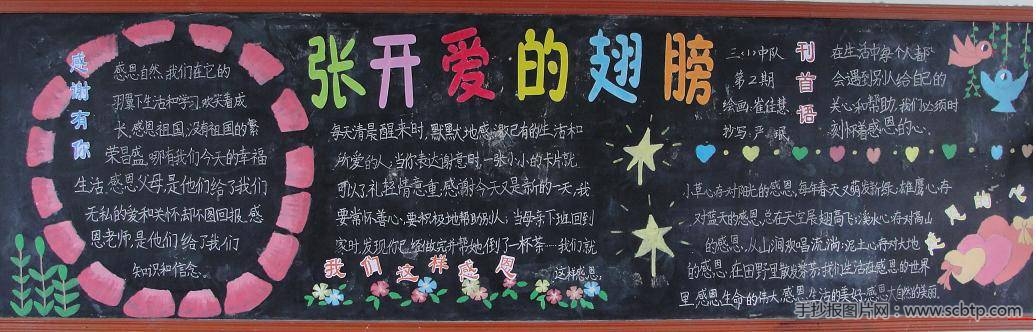 张开爱的翅膀
感谢有你
感恩自然,我们在它的
羽翼下生活和学习,欢笑着成
长,感恩祖国,没有祖国的繁
荣昌盛,哪有我们今天的幸福
生活,感恩父母,是他们给了我们
无私的爱和关怀却不图回报,感
恩老师,是他们给了我们
知识和信念。
每天清晨醒来时,默默大地感激已有的生活和
所爱的人,当你表达谢意时,一张小小的卡片就
可以了,礼轻情意重,感谢今天又是新的一天,我
要常怀善心,要积极地帮助别人,当母亲下班回到
家时,发现你已经做完并帮她倒了一杯茶……我们就
这样感恩
我们这样感恩
三(1)中队
第2期
绘画:崔佳慧
抄写:严
刊首语
在生活中每个人都
会遇到别人给自己的
关心和帮助,我们必须时
刻怀着感恩的心。
小草心存对阳光的感恩,每年春天又萌发新绿;雄鹰心存
对蓝天的感恩,总在天空展翅高飞;溪水心存对高山
的感恩,从山涧欢唱流淌;泥土心存对大地
的感恩,在田野里散发芬芳;我们生活在感恩的世界
里,感恩生命的伟大,感恩生活的美好,感恩大自然的美丽.
恩的心
手抄报图片网:www.scbtp.com